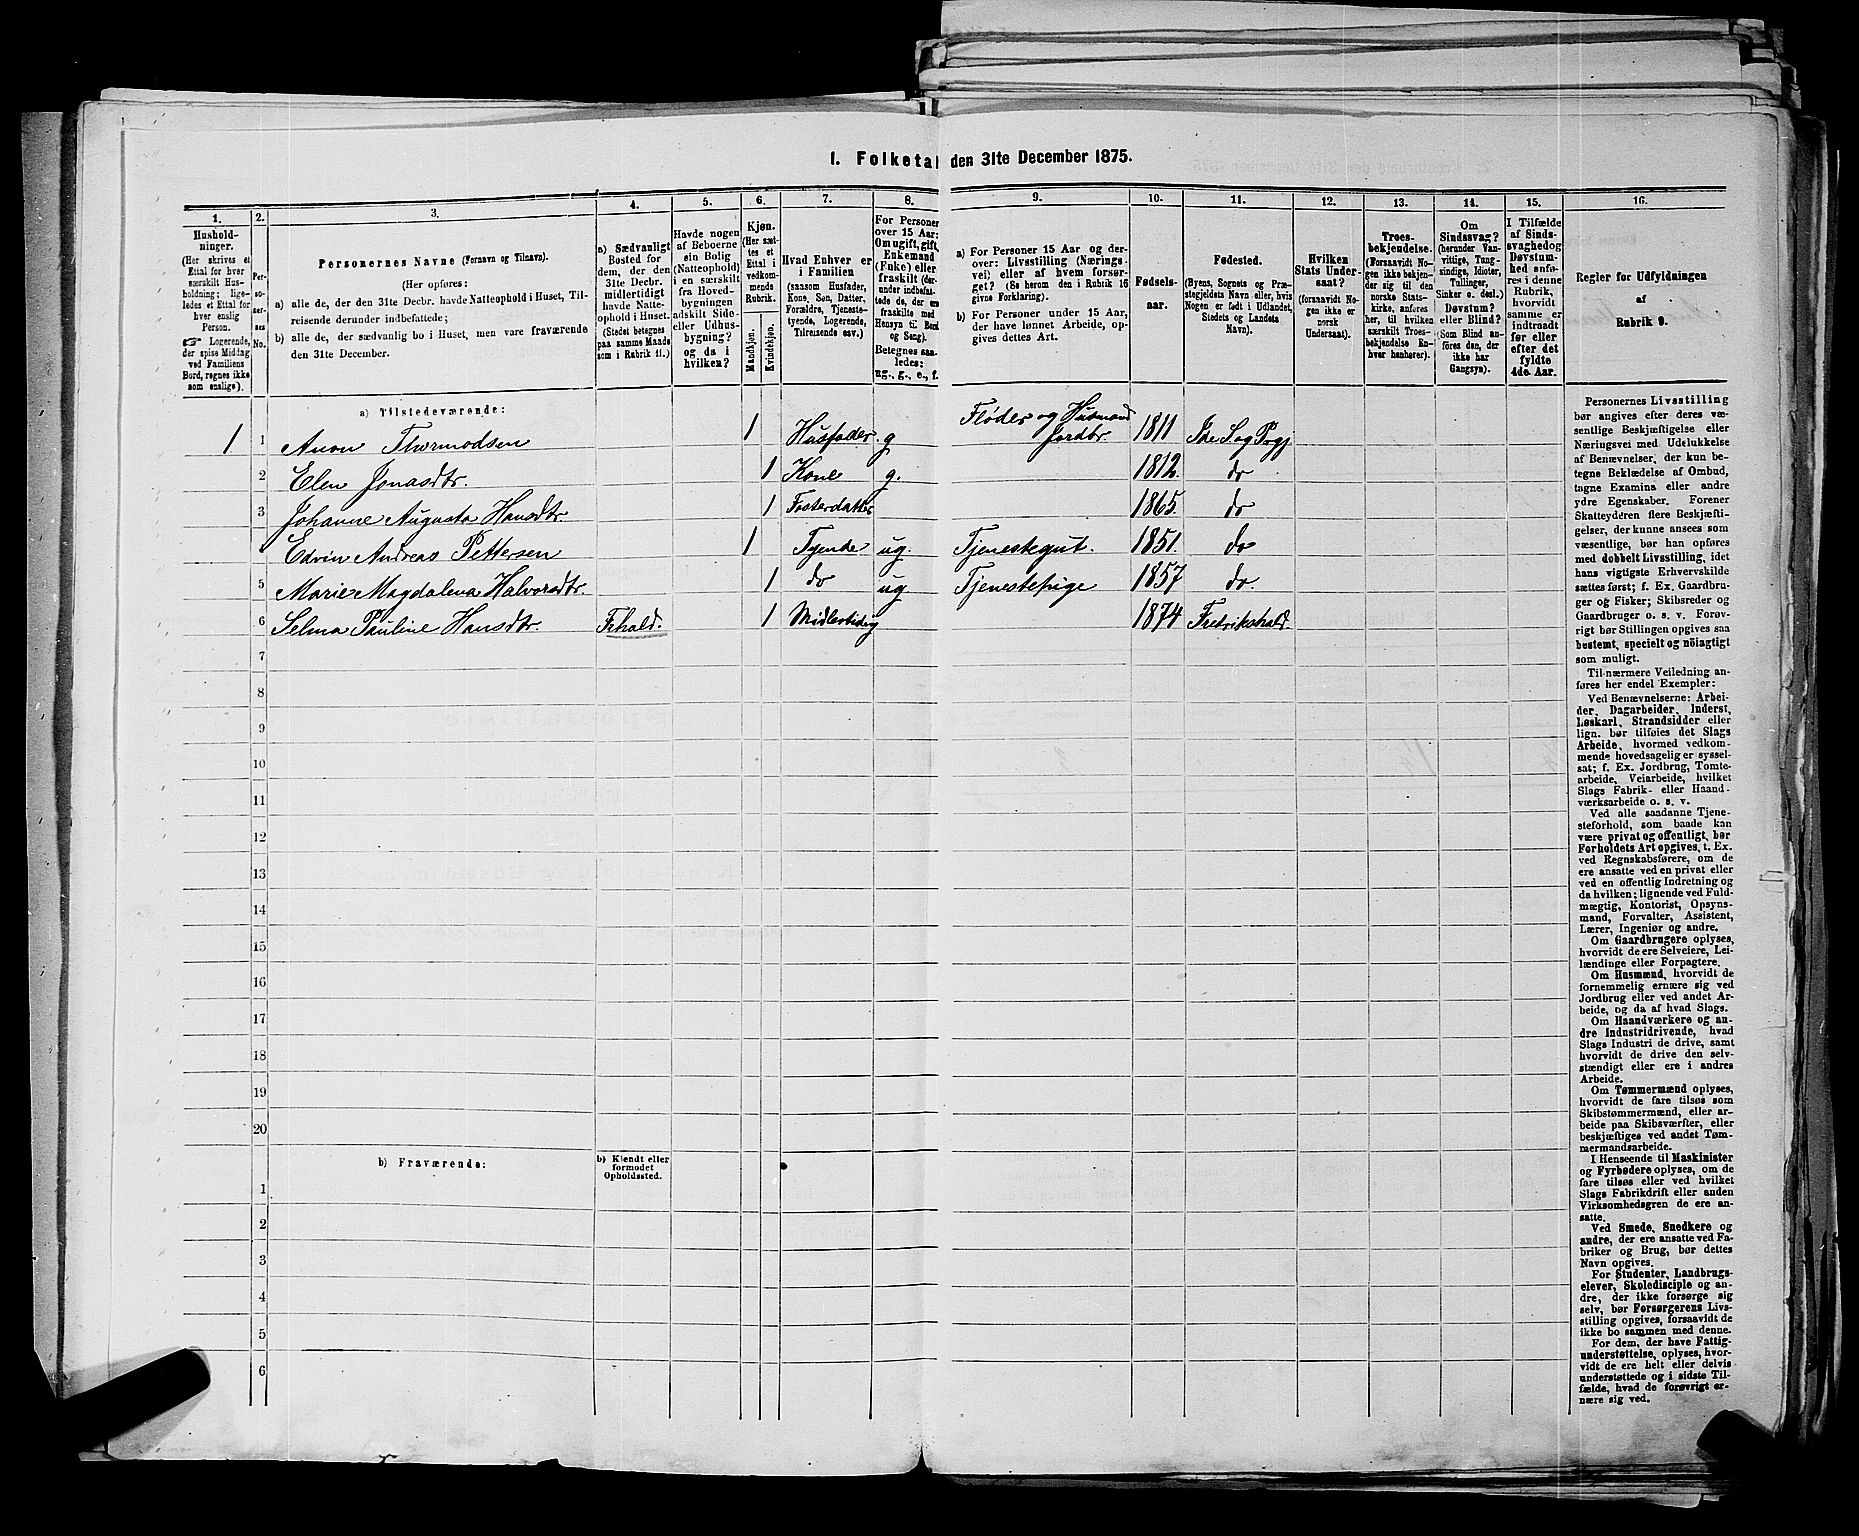 1. Folketal den 31te December 1875.
1.
2.
3.
4.
5.
6.
7.
8.
9.
10.
11.
12.
13.
14.
15.
16.
Hushold-
ninger.
(Her skrives et
Ettal for hver
særskilt Hus-
holdning; lige-
ledes et Ettal for
hver enslig
Person.
☞ Logerende,
der spise Middag
ved Familiens
Bord, regnes ikke
som enslige).
Per-
so-
ner-
nes
No.
Personernes Navne (Fornavn og Tilnavn).
(Her opføres:
a) alle de, der den 31te Decbr. havde Natteophold i Huset, Til-
reisende derunder indbefattede;
b) alle de, der sædvanlig bo i Huset, men vare fraværende
den 31te December.
a) Sædvanligt
Bosted for
dem, der den
31te Decbr.
midlertidigt
havde Natte-
ophold i Huset.
(Stedet betegnes
paa samme Maade
som i Rubrik 11.)
Havde nogen
af Beboerne
sin Bolig
(Natteophold)
i en særskilt
fra Hoved-
bygningen
adskilt Side-
eller Udhus-
bygning?
og da i
hvilken?
Kjøn.
(Her sæt-
tes et
Ettal i
vedkom-
mende
Rubrik.
Mandkjøn.
Kvindekjøn.
Hvad Enhver er
i Familien
(saasom Husfader,
Kone, Søn, Datter,
Forældre, Tjeneste-
tyende, Logerende,
Tilreisende osv.)
For Personer
over 15 Aar:
Om ugift, gift,
Enkemand
(Enke) eller
fraskilt (der-
under indbefat-
tede de, der ere
fraskilte med
Hensyn til Bord
og Seng).
Betegnes saa-
ledes:
ug., g., e., f.
a) For Personer 15 Aar og der-
over: Livsstilling (Nærings-
vei) eller af hvem forsør-
get? (Se herom den i Rubrik 16
givne Forklaring).
b) For Personer under 15 Aar,
der have lønnet Arbeide, op-
gives dettes Art.
Fødsels-
aar.
Fødested.
(Byens, Sognets og Præ-
stegjeldets Navn eller, hvis
Nogen er født i Udlandet,
Stedets og Landets
Navn).
Hvilken
Stats Under-
saat?
(forsaavidt No-
gen ikke er
norsk
Undersaat).
Troes-
bekjendelse.
(Forsaavidt No-
gen ikke bekjen-
der sig til den
norske Stats-
kirke, anføres
her, til hvilken
særskilt Troes-
bekjendelse En-
hver henhører).
Om
Sindssvag?
(herunder Van-
vittige, Tung-
sindige, Idioter,
Tullinger,
Sinker o. desl.)
Døvstum?
eller Blind?
(Som Blind an-
føres den, der
ikke har
Gangsyn).
I Tilfælde
af Sinds-
svaghed og
Døvstum-
hed anfø-
res i denne
Rubrik,
hvorvidt
samme er
indtraadt
før eller
efter det
fyldte
4de Aar.
Regler for Udfyldningen
af
Rubrik 9.
a) Tilstedeværende:
1 1 Anon Thormodsen 1 Husfader g Fløder og Husmand Jordbr. 1811 Ide Sog Prgj
2 Elen Jonasdtr. 1 Kone g. 1812. do
3 Johanne Augusta Hansdtr. 1 Fosterdatter 1865. do
Edvin Andreas Pettersen 1 Tyende ug. Tjenestegut. 1851. do
5 Marie Magdalena Halvorsdtr. 1 do ug Tjenestepige 1857 do.
6 Selma Pauline Hansdtr. Frhald. 1 Midlertidig 1874 Fredrikshald
7
8
9
10
11
12
13
14
15
16
17
18
19
20
b) Fraværende:
b) Kjendt eller
formodet
Opholdssted.
1
2
3
4
5
6
Personernes Livsstilling
bør angives efter deres væ-
sentlige Beskjæftigelse eller
Næringsvei med Udelukkelse
af Benævnelser, der kun be-
tegne Beklædelse af Ombud,
tagne Examina eller andre
ydre Egenskaber. Forener
Skatteyderen flere Beskjæfti-
gelser, der kunne ansees som
væsentlige, bør han opføres
med dobbelt Livsstilling, idet
hans vigtigste Erhvervskilde
sættes først; f. Ex. Gaardbru-
ger og Fisker; Skibsreder og
Gaardbruger o. s. v. Forøv-
rigt bør Stillingen opgives saa
bestemt, specielt og nöiagtigt
som muligt.
Til nærmere Veiledning an-
føres her endel Exempler:
Ved Benævnelserne: Arbei-
der, Dagarbeider, Inderst,
Løskarl, Strandsidder eller
lign. bør tilføies det Slags
Arbeide, hvormed vedkom-
mende hovedsagelig er syssel-
sat; f. Ex. Jordbrug, Tomte-
arbeide, Veiarbeide, hvilket
Slags Fabrik- eller Haand-
værksarbeide o. s. v.
Ved alle saadanne Tjene-
steforhold, som baade kan
være privat og offentligt, bør
Forholdets Art opgives, t. Ex.
ved Regnskabsførere, om de
ere ansatte ved en privat eller
ved en offentlig Indretning og
da hvilken; lignende ved Fuld-
mægtig, Kontorist, Opsyns-
mand, Forvalter, Assistent,
Lærer, Ingeniør og andre.
Om Gaardbrugere oplyses,
hvorvidt de ere Selveiere, Lei-
lændinge eller Forpagtere.
Om Husmænd, hvorvidt de
fornemmelig ernære sig ved
Jordbrug eller ved andet Ar-
beide, og da af hvad Slags.
Om Haandværkere og an-
dre Industridrivende, hvad
Slags Industri de drive, samt
hvorvidt de drive den selv-
stændigt eller ere i andres
Arbeide.
Om Tømmermænd oplyses,
hvorvidt de fare tilsøs som
Skibstømmermænd, eller ar-
beide paa Skibsværfter, eller
beskjæftiges ved andet Tøm-
mermandsarbeide.
I Henseende til Maskinister
og Fyrbødere oplyses, om de
fare tilsøs eller ved hvilket
Slags Fabrikdrift eller anden
Virksomhedsgren de ere an-
satte.
Ved Smede, Snedkere og
andre, der ere ansatte ved Fa-
briker og Brug, bør dettes
Navn opgives.
For Studenter, Landbrugs-
elever, Skoledisciple og an-
dre, der ikke forsørge sig
selv, bør Forsørgerens Livs-
stilling opgives, forsaavidt de
ikke bo sammen med denne.
For dem, der have Fattig-
understøttelse, oplyses, hvor-
vidt de ere helt eller delvis
understøttede og i sidste Til-
fælde, hvad de forøvrigt er-
nære sig ved.